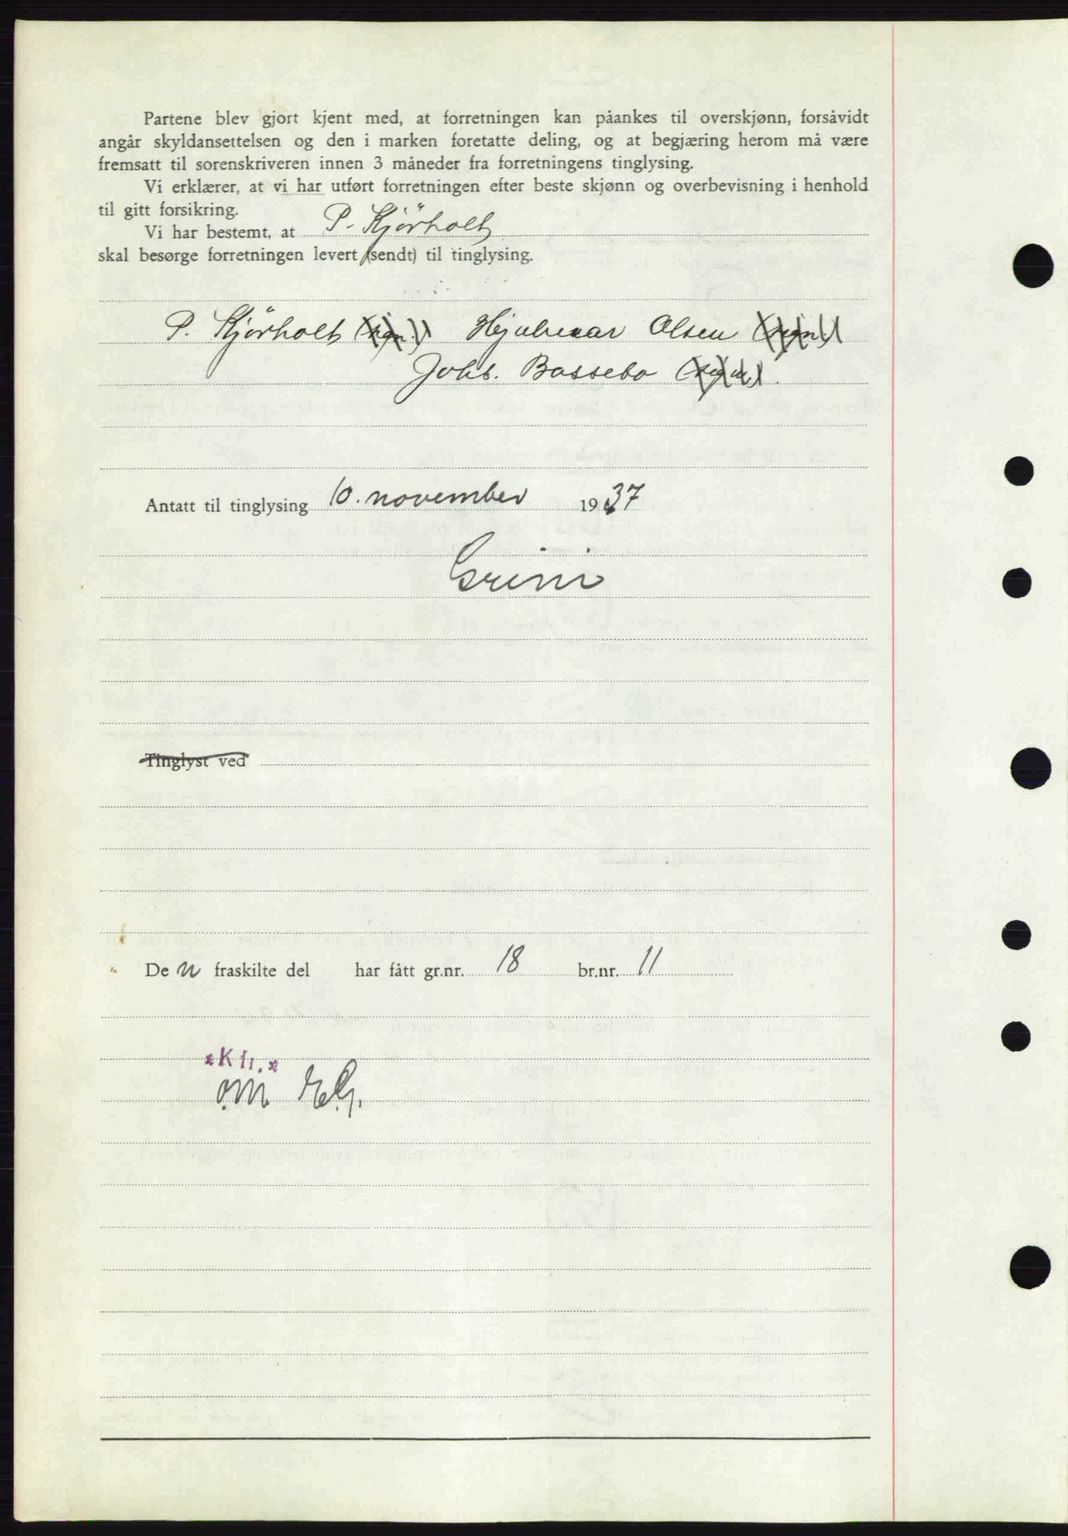 Partene blev gjort kjent med, at forretningen kan påankes til overskjønn, forsåvidt
angår skyldansettelsen og den i marken foretatte deling, og at begjæring herom må være
fremsatt til sorenskriveren innen 3 måneder fra forretningens tinglysing.
Vi erklærer, at vi har utført forretningen efter beste skjønn og overbevisning i henhold
til gitt forsikring.
Vi har bestemt, at P. Kjörholt
skal besørge forretningen levert (sendt) til tinglysing.
P. Kjörholt (sign.) Hjalmar Olsen (sign.)
Johs. Bassebo (sign.)
Antatt til tinglysing 10. november 1937
Grini
Tinglyst ved
Den fraskilte del har fått gr.nr. 18 br.nr. 11
*Kfr.*